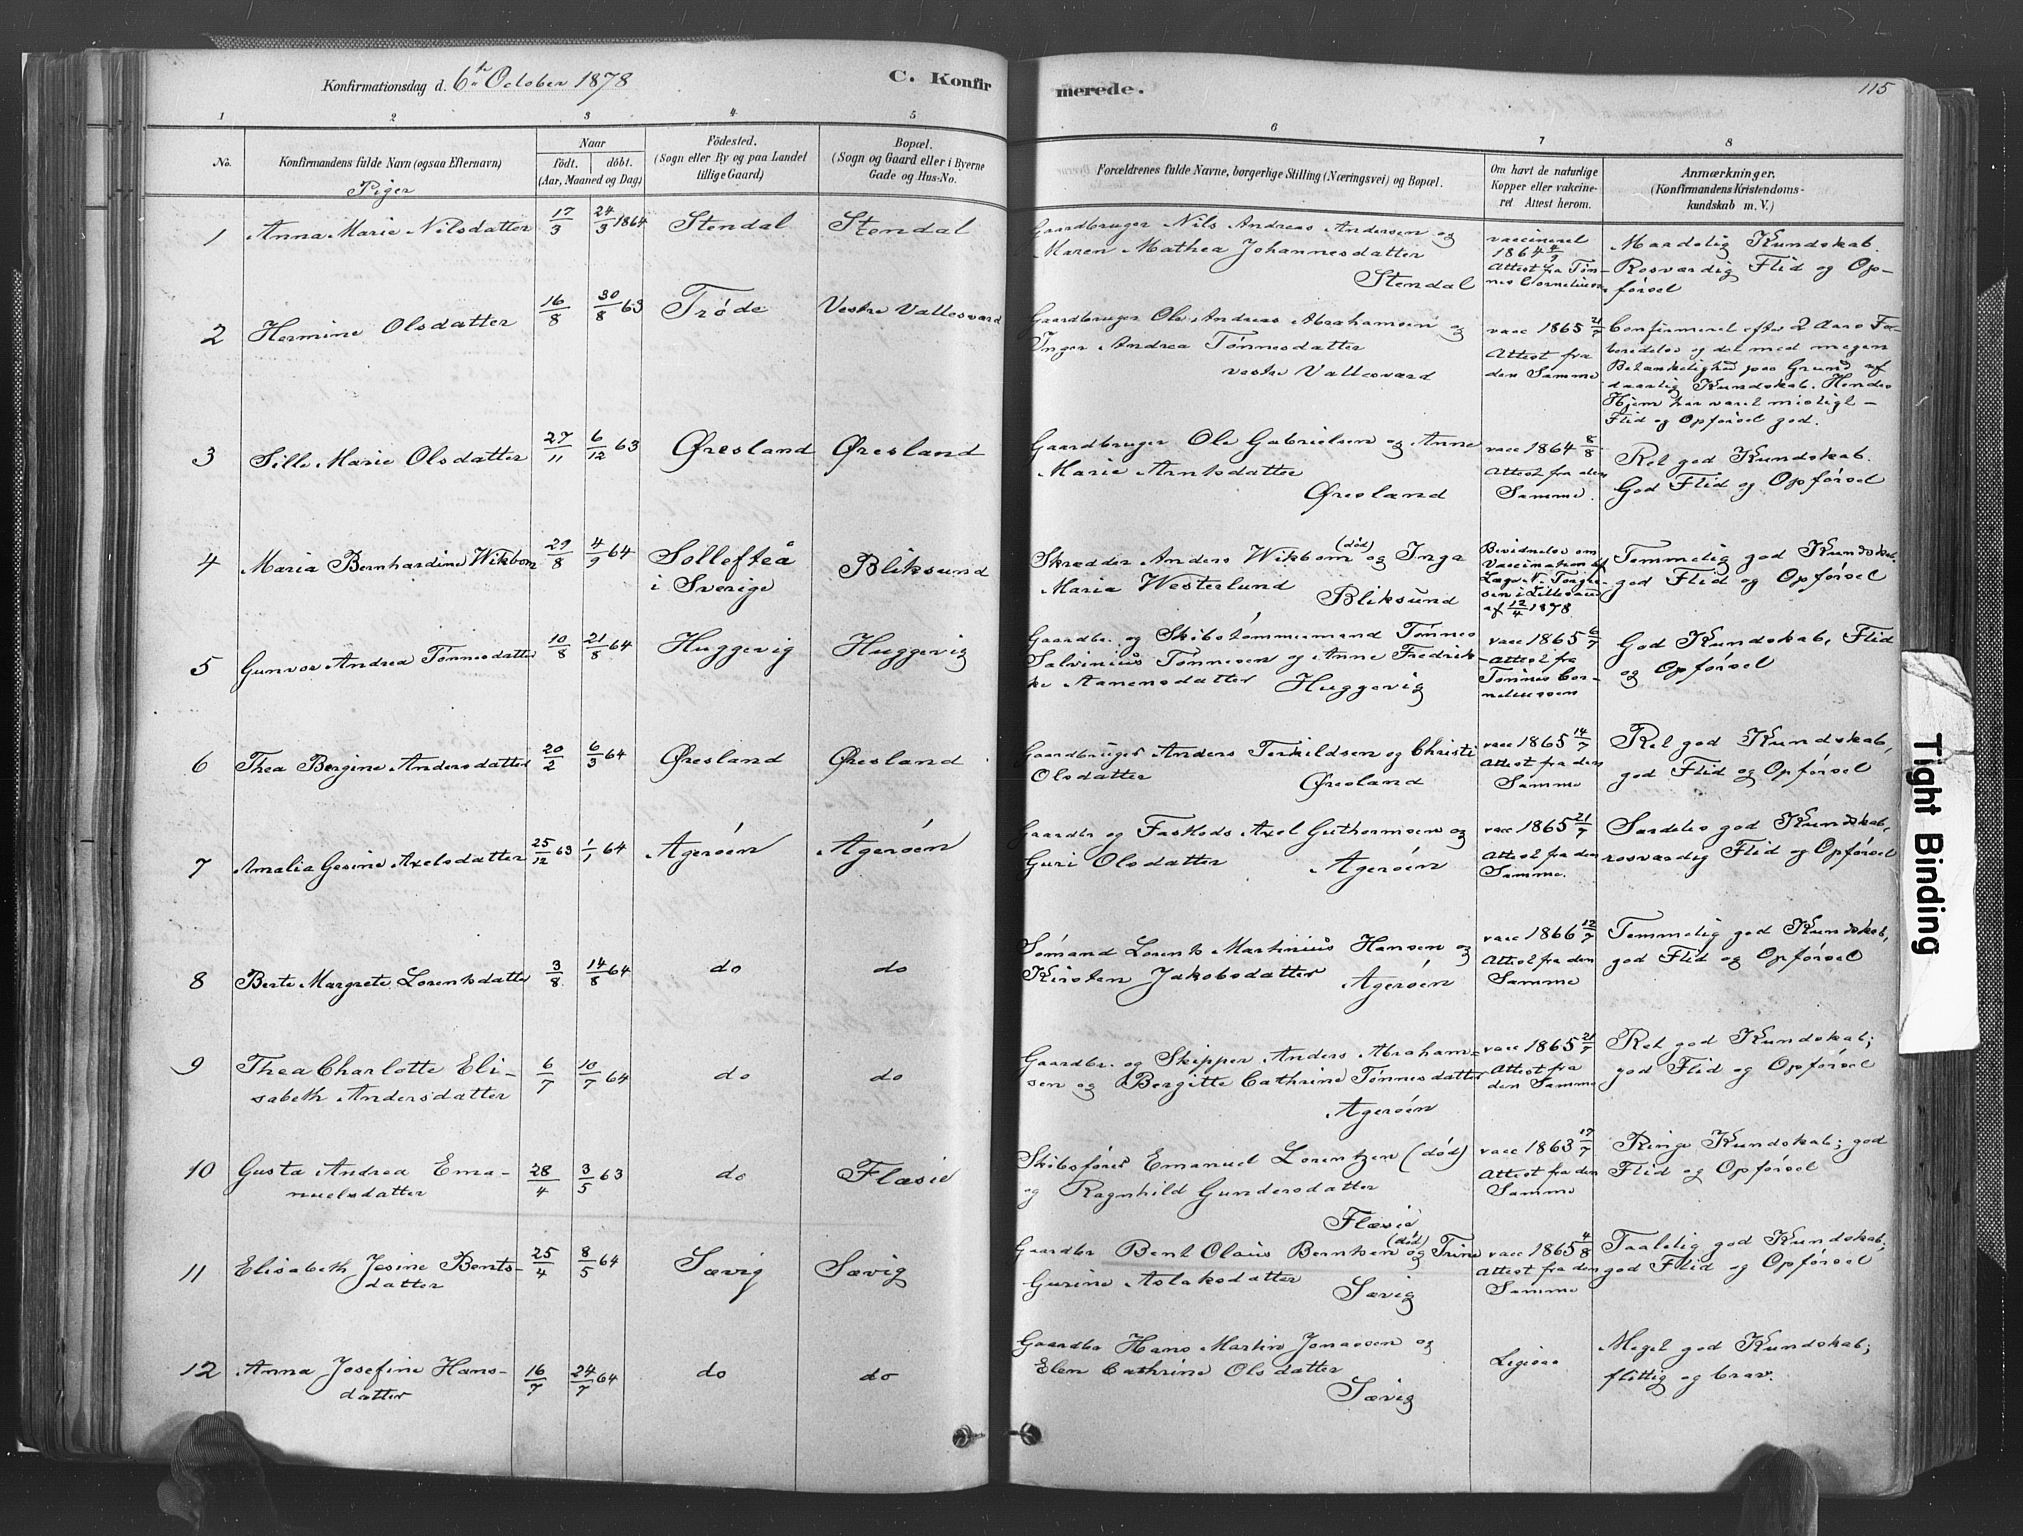 Konfirmationsdag d. 6te October 1878
C. Konfir
merede.
115
1 2 3 4 5 6 7 8
No.
Konfirmandens fulde Navn (ogsaa Efternavn)
Piger
Naar
født. døbt.
(Aar, Maaned og Dag)
Fødested.
(Sogn eller By og paa Landet
tillige Gaard)
Bopæl.
(Sogn og Gaard eller i Byerne
Gade og Hus-No.
Forældrenes fulde Navne, borgerlige Stilling (Næringsvei) og Bopæl.
Om havt de naturlige
Kopper eller vakcine-
ret Attest herom.
Anmærkninger.
(Konfirmandens Kristendoms-
kundskab m. V.)
1 Anna Marie Nilsdatter 17/3 24/3 1864 Stendal Stendal
Gaardbruger Nils Andreas Andersen og
Maren Mathea Johannesdatter
Stendal
vaccineret
1864 4/9
Attest fra Tøn-
nes Corneliussen
Maadelig Kundskab.
Rosværdig Flid og Op-
førsel
2 Hermine Olsdatter 16/8 30/8 63 Trøde Vestre Vallesværd
Gaardbruger Ole Andreas Abrahamsen og
Inger Andrea Tønnesdatter
vestre Vallesværd
vacc 1865 21/7
Attest fra
den Samme
Confirmeret efter 2 Aars For-
beredelse og det med megen
Betænkelighed paa Grund af
daarlig Kundskab. Hendes
Hjem har været misligt -
Flid og Opførsel god.
3 Sille Marie Olsdatter 27/11 6/12 63 Øresland Øresland
Gaardbruger Ole Gabrielsen og Anne
Marie Arntsdatter
Øresland
vacc 1864 8/8
Attest fra den
Samme.
Ret god Kundskab.
God Flid og Opførsel
4 Maria Bernhardine Wikbom 29/8 4/9 64 Sollefteå
i Sverige
Bliksund
Skrædder Anders Wikbom (død) og Inga
Maria Westerlund
Bliksund
Bevidnelse om
Vaccination af
Læge N. Torgre-
sen i Lillesand
af 12/4 1878
Temmelig god Kundskab.
god Flid og Opførsel
5 Gunvor Andrea Tønnesdatter 10/8 21/8 64 Huggevig Huggevig
Gaardbr. og Skibstømmermand Tønnes
Salvinius Tønnesen og Anne Fredrik-
ke Aanensdatter Huggevig
vacc 1865 6/7
Attest fra
Tønnes Cor-
neliussen
God Kundskab, Flid
og Opførsel
6 Thea Bergine Andersdatter 20/2 6/3 64 Øresland Øresland
Gaardbruger Anders Terkildsen og Christi
Olsdatter
Øresland
vacc 1865 14/7
Attest fra den
Samme
Ret god Kundskab,
god Flid og Opførsel
7 Amalia Gesine Axelsdatter 25/12 63 1/1 64 Agerøen Agerøen
Gaardbr og Faskods Axel Guthormsen og
Guri Olsdatter
Agerøen
vacc 1865 21/7
Attest fra den
Samme.
Særdeles god Kundskab,
rosværdig Flid og Opførsel
8 Berte Margrete Lorentsdatter 3/8 14/8 64 do do
Sømand Lorents Martinius Hansen og
Kirsten Jakobsdatter
Agerøen
vacc 1866 12/7
Attest fra den
Samme
Temmelig god Kundskab,
god Flid og Opførsel
9 Thea Charlotte Eli-
sabeth Andersdatter
6/7 10/7 64 do do
Gaardbr. og Skipper Anders Abraham-
sen og Bergitte Cathrine Tønnesdatter
Agerøen
vacc 1865 21/7
Attest fra
den Samme
Ret god Kundskab;
god Flid og Opførsel
10 Gusta Andrea Ema-
nuelsdatter
28/4 3/5 63 do Flæsie
Skibsfører Emanuel Lorentzen (død)
og Ragnhild Gundersdatter
Flæsie
vacc 1863 17/7
Attest fra den
Samme
Ringe Kundskab; god
Flid og Opførsel
11 Elisabeth Jesine Bents-
datter
25/4 8/5 64 Sævig Sævig
Gaardbr Bent Olaus Berntsen (død) og Trine
Gurine Aslaksdatter
Sævig
vacc 1865 4/8
Attest fra den
Samme
Taalelig god Kundskab;
god Flid og Opførsel
12 Anna Josefine Hans-
datter
16/7 24/7 64 do do
Gaardbr Hans Martin Jonassen og
Elen Cathrine Olsdatter
Sævig
Ligesaa
Meget god Kundskab;
flittig og brav.
Tight Binding